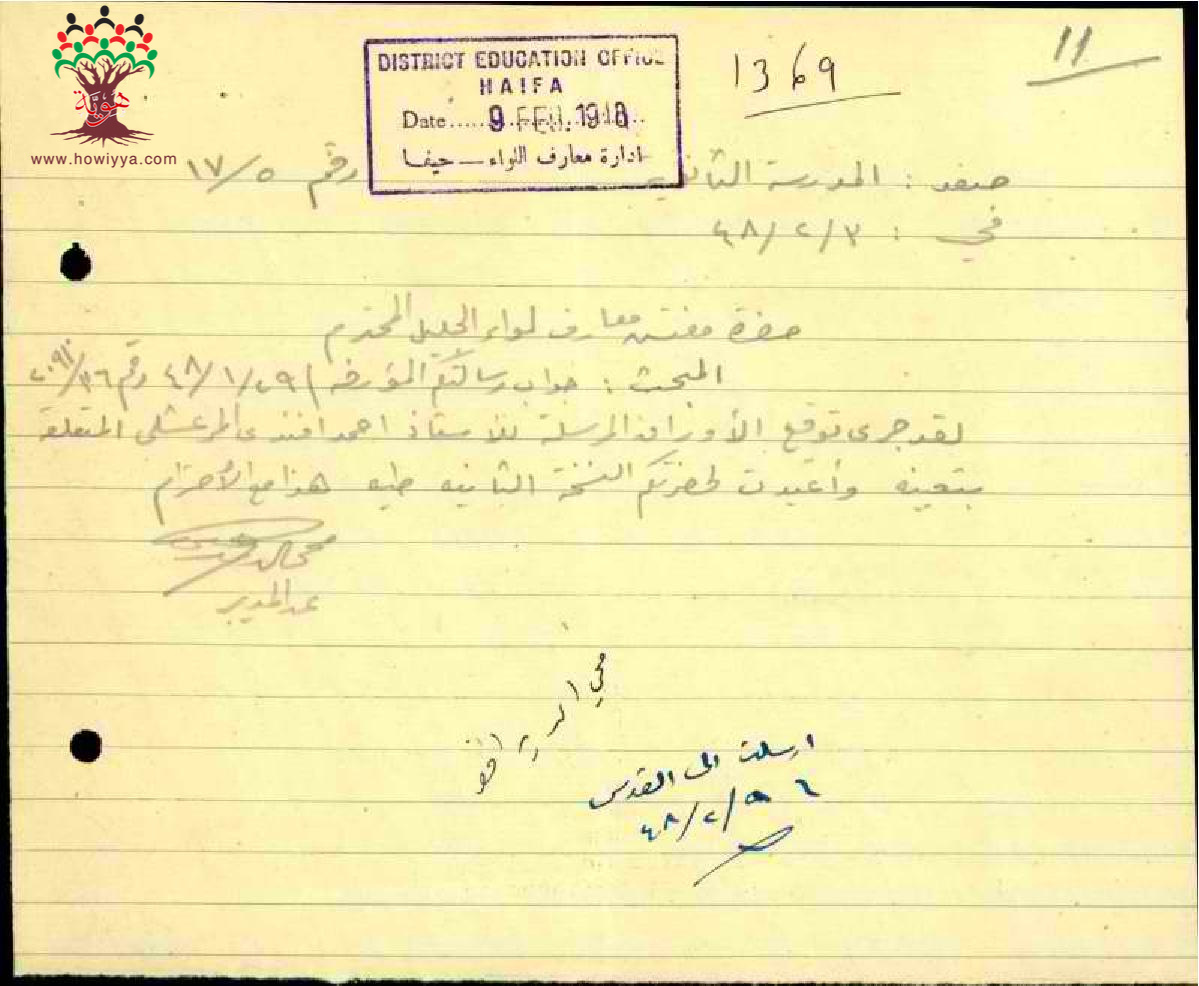 هويّة
www.howiyya.com
DISTRICT EDUCATION OFFICE
HAIFA
Date..... 9 FEB. 1948..
ادارة معارف اللواء — حيفا
1369
11
صفد : المدرسة الثانوية رقم ١٧/٥
في : ٤٨/٢/٣
حضرة مفتش معارف لواء الجليل المحترم
المبحث : جواب رسالتكم المؤرخة ٤٨/١/٢٩ رقم
لقد جرى توقيع الأوراق المرسلة للأستاذ احمد افندي المرعشلي المتعلقة
بتعيينه واعيدت لحضرتكم النسخة الثانية طيه هذا مع الأحترام
عن المدير
محي الدين
ارسلت الى القدس
٤٨/٢/